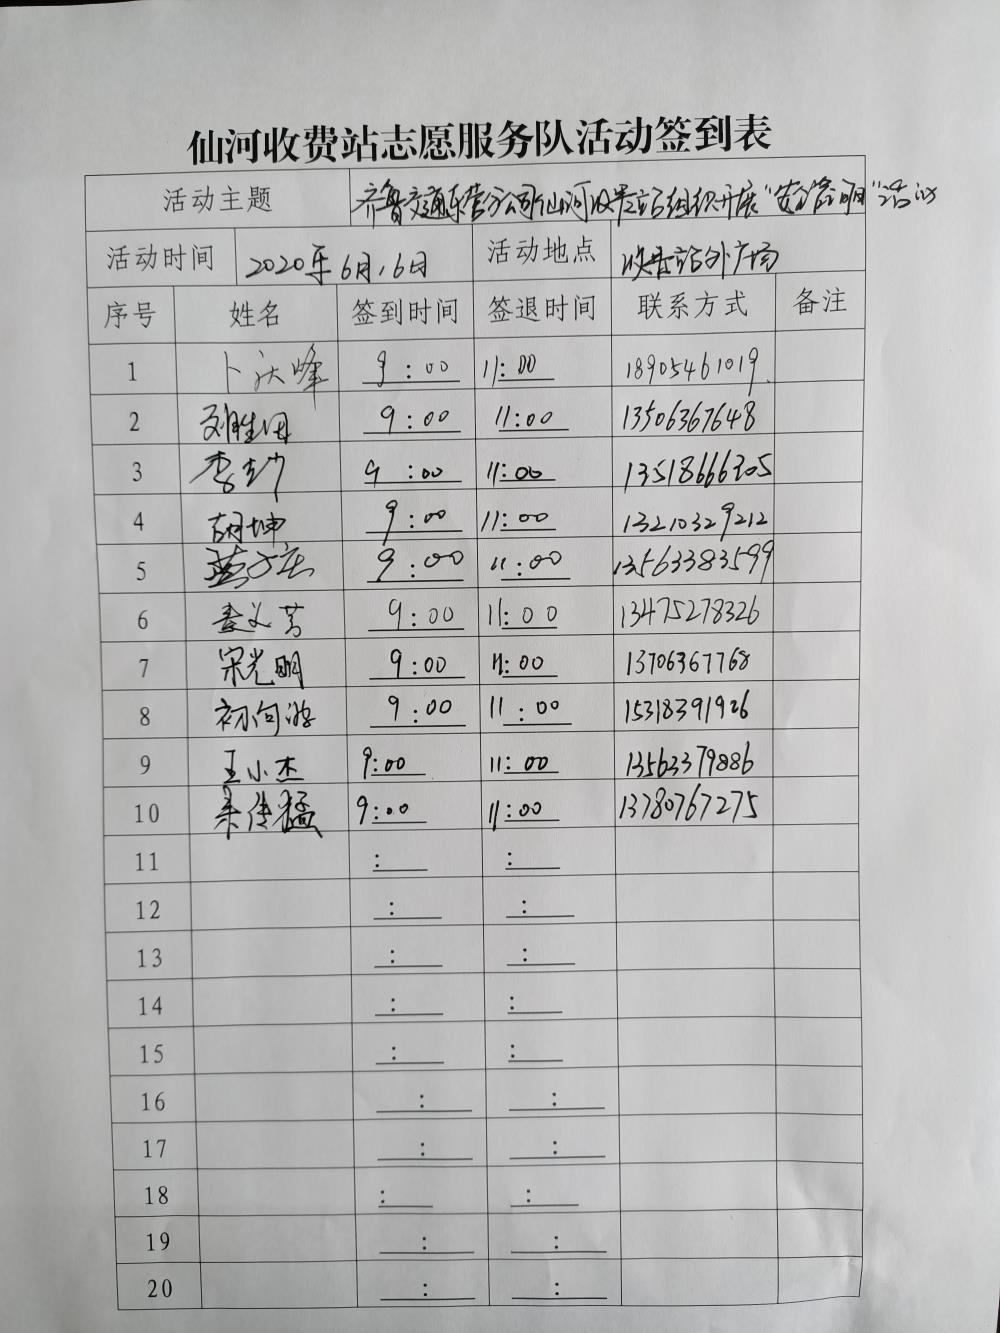 仙河收费站志愿服务队活动签到表
活动主题 齐鲁交通东营分公司仙河收费站组织开展"安全"活动
活动时间 2020年6月16日 活动地点 收费站外广场
序号 姓名 签到时间 签退时间 联系方式 备注
1 卜庆峰 9:00 11:00 18905461019
2 刘胜田 9:00 11:00 13506367648
3 李 9:00 11:00 13518666305
4 胡坤 9:00 11:00 13210329212
5 燕子庄 9:00 11:00 13563383599
6 义芳 9:00 11:00 13475278326
7 宋光明 9:00 11:00 13706367768
8 初向游 9:00 11:00 15318391926
9 王小杰 9:00 11:00 13563379886
10 传猛 9:00 11:00 13780767275
11 : :
12 : :
13 : :
14 : :
15 : :
16 : :
17 : :
18 : :
19 : :
20 : :